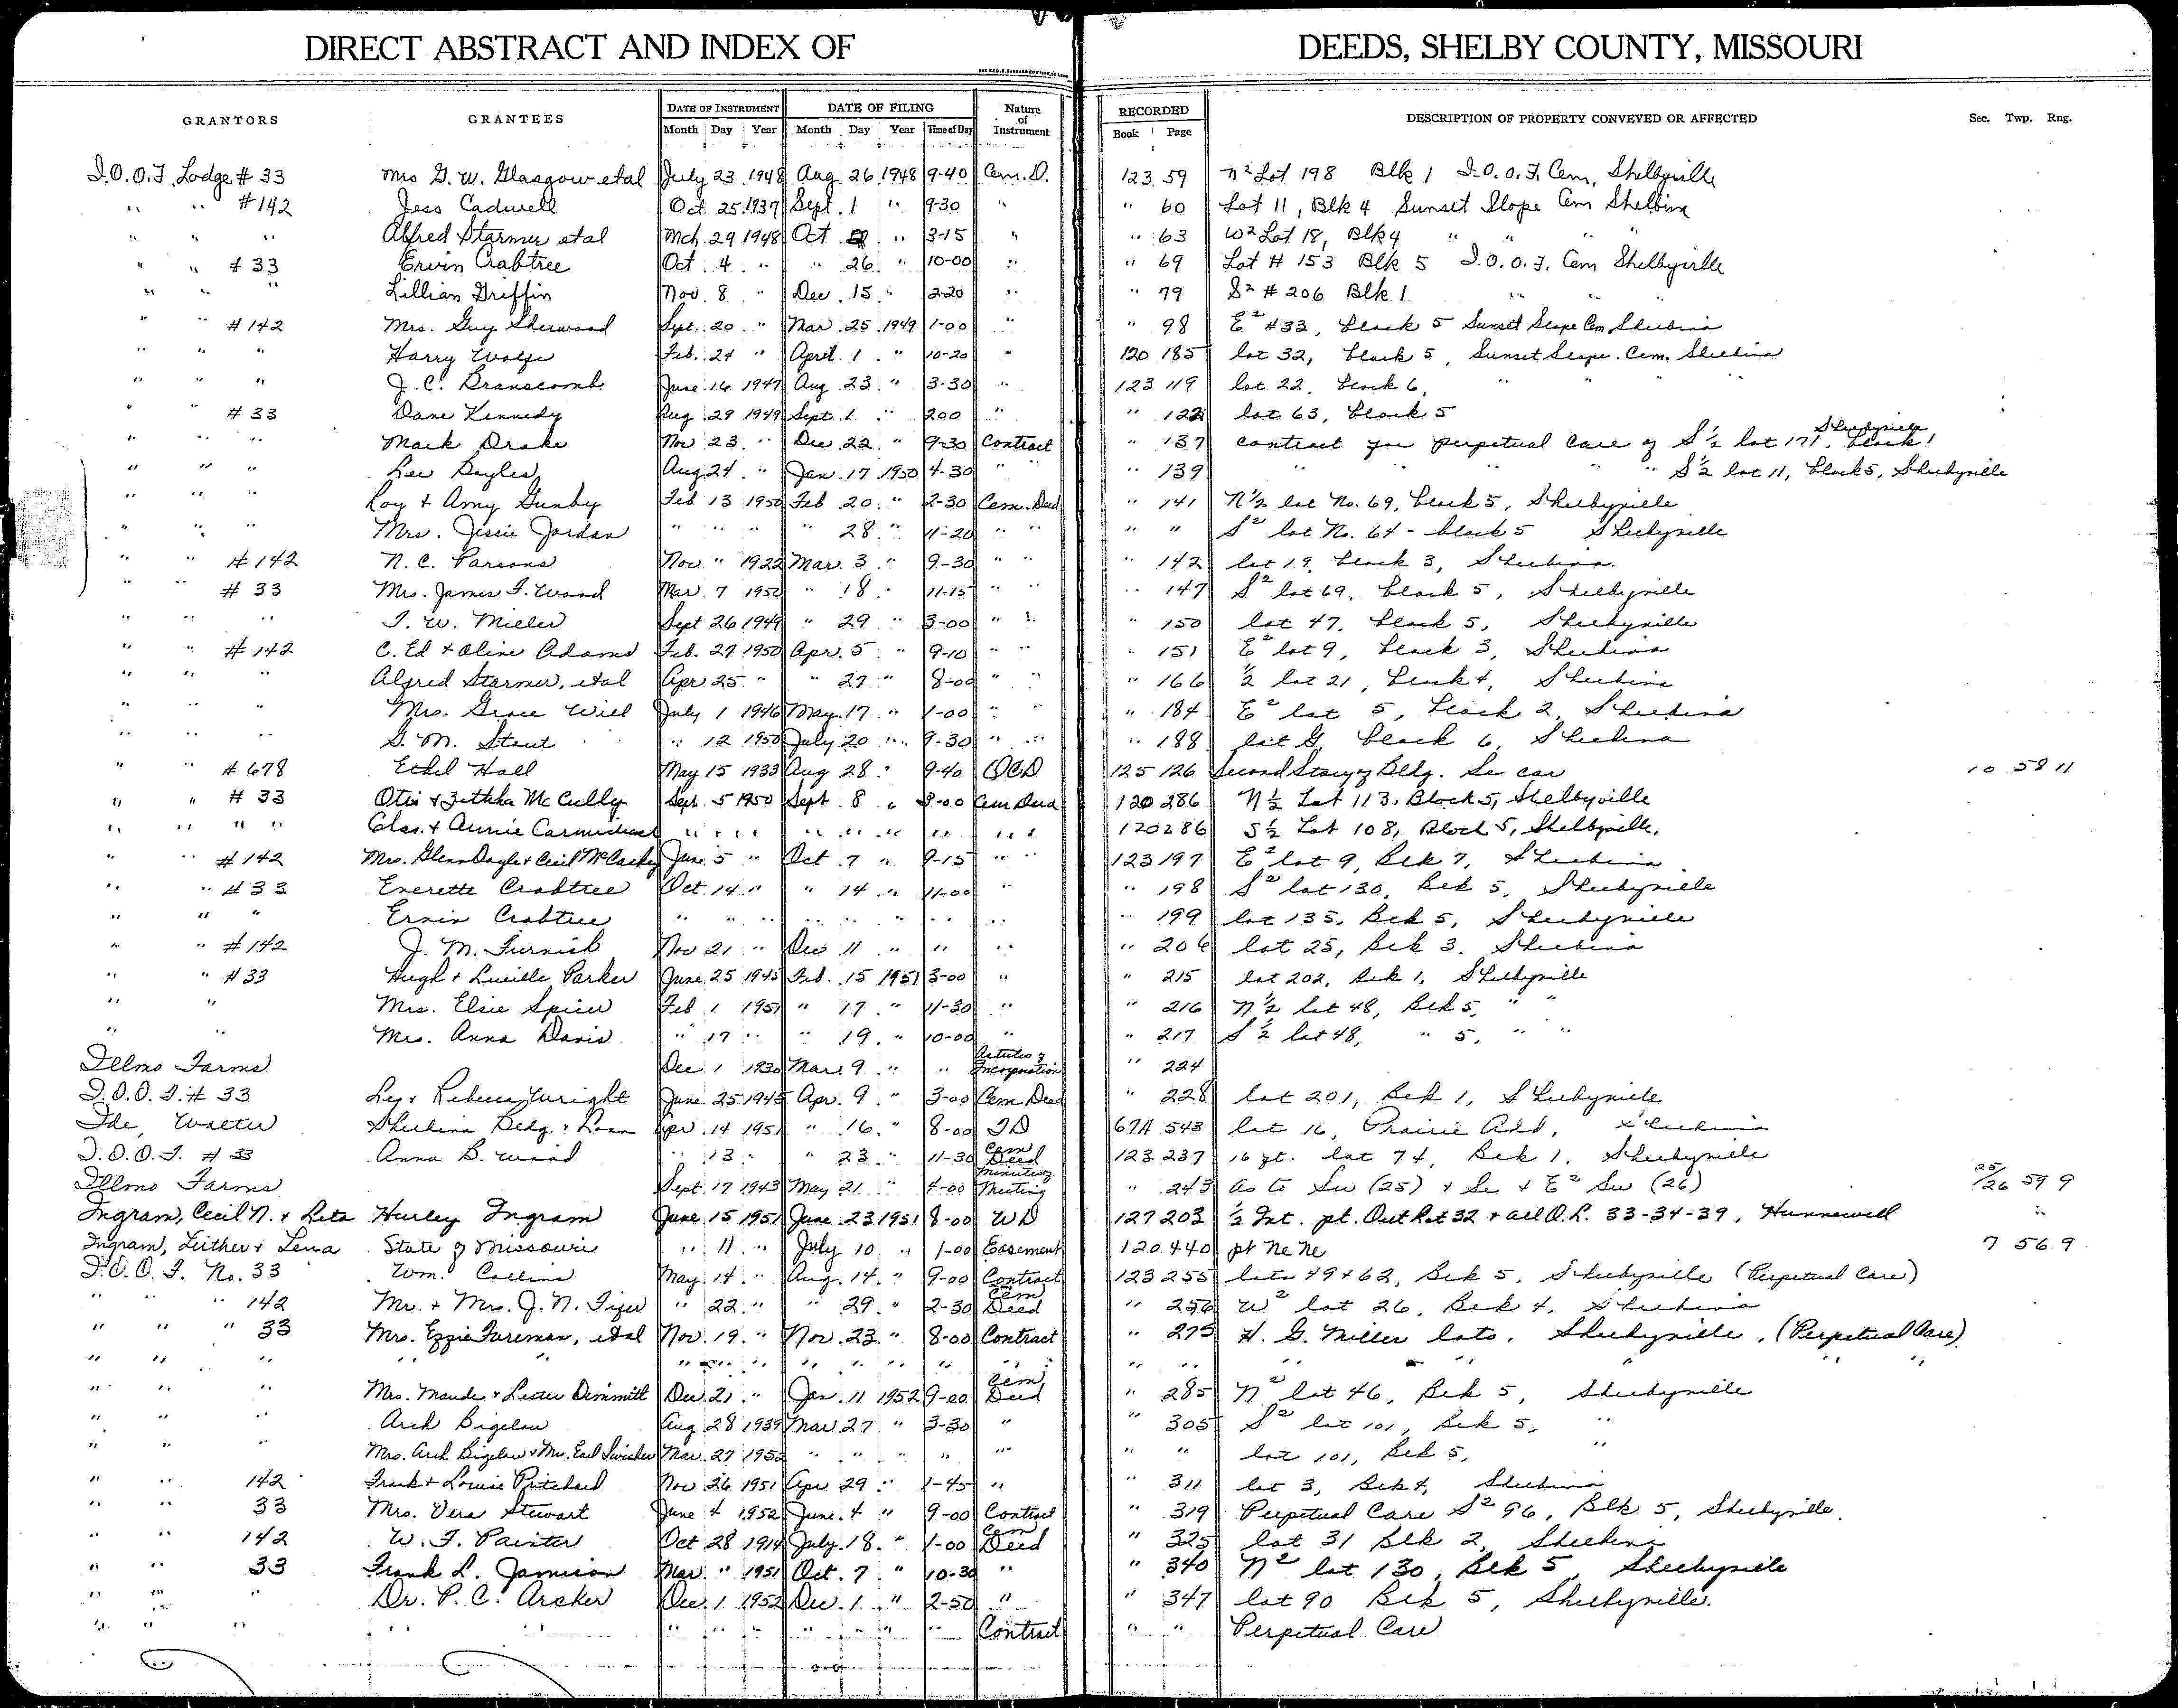 DIRECT ABSTRACT AND INDEX OF DEEDS, SHELBY COUNTY, MISSOURI
GRANTORS GRANTEES DATE OF INSTRUMENT DATE OF FILING Nature of Instrument RECORDED DESCRIPTION OF PROPERTY CONVEYED OR AFFECTED Sec. Twp. Rng.
Month Day Year Month Day Year Time of Day Book Page
I.O.O.F. Lodge # 33 Mrs G. W. Glasgow etal July 23 1948 Aug 26 1948 9-40 Cem. D. 123 59 N² Lot 198 Blk 1 I.O.O.F. Cem, Shelbyville
" " #142 Jess Cadwell Oct 25 1937 Sept. 1 " 9-30 " " 60 Lot 11, Blk 4 Sunset Slope Cem Shelbina
" " " Alfred Starmer etal Mch 29 1948 Oct " 3-15 " " 63 W² Lot 18, Blk 4 " " " "
" " # 33 Ervin Crabtree Oct. 4 " " 26 " 10-00 " " 69 Lot # 153 Blk 5 I.O.O.F. Cem Shelbyville
" " " Lillian Griffin Nov. 8 " Dec. 15 " 2-20 " " 79 S² # 206 Blk 1 " " "
" " #142 Mrs. Guy Sherwood Sept. 20 " Mar 25 1949 1-00 " " 98 E² #33, block 5 Sunset Slope Cem, Shelbina
" " " Harry Wolfe Feb. 24 " April 1 " 10-20 " 120 185 lot 32, block 5, Sunset Slope. Cem. Shelbina
" " " J. C. Branscomb June 16 1947 Aug 23 " 3-30 " 123 119 lot 22, block 6, " " "
" " # 33 Dane Kennedy Aug 29 1949 Sept. 1 " 200 " " 122 lot 63, block 5
" " " Mark Drake Nov 23 " Dec 22 " 9-30 Contract " 137 contract for perpetual care of S½ lot 171, block 1 Shelbyville
" " " Lee Bayles Aug 24 " Jan 17 1950 4-30 " " " 139 " " " " " S½ lot 11, block 5, Shelbyville
" " " Roy + Amy Gunby Feb 13 1950 Feb 20 " 2-30 Cem. Deed " 141 N½ lot No. 69, block 5, Shelbyville
" " " Mrs. Jessie Jordan " " " " 28 " 11-20 " " " " S² lot No. 64 - block 5 Shelbyville
" " #142 N. C. Parsons Nov " 1922 Mar. 3 " 9-30 " " " 142 lot 19, block 3, Shelbina.
" " # 33 Mrs. James F. Wood Mar. 7 1950 " 18 " 11-15 " " " 147 S² lot 69, block 5, Shelbyville
" " " T. W. Miller Sept 26 1949 " 29 " 3-00 " " " 150 lot 47, block 5, Shelbyville
" " #142 C. Ed + Oline Adams Feb. 27 1950 Apr. 5 " 9-10 " " " 151 E² lot 9, block 3, Shelbina
" " " Alfred Starmer, etal Apr 25 " " 27 " 8-00 " " " 166 ½ lot 21, block 4, Shelbina
" " " Mrs. Grace Will July 1 1946 May 17 " 1-00 " " " 184 E² lot 5, block 2, Shelbina
" " " G. M. Stout " 12 1950 July 20 " 9-30 " " " 188 lot G, block 6, Shelbina
" " # 678 Ethel Hall May 15 1933 Aug 28 " 9-40 QCD 125 126 Second Story of Bldg. Se cor 10 58 11
" " # 33 Otis + Zethka McCully Sept. 5 1950 Sept. 8 " 8-00 Cem Deed 120 286 N½ Lot 113, Block 5, Shelbyville
" " " " Chas. + Annie Carmichael " " " " " " " " " 120 286 S½ Lot 108, Block 5, Shelbyville.
" " #142 Mrs. Glenn Dayle + Cecil McCaskey June 5 " Oct 7 " 9-15 " " 123 197 E² lot 9, Blk 7, Shelbina
" " # 33 Everette Crabtree Oct. 14 " " 14 " 11-00 " " 198 S² lot 130, Blk 5, Shelbyville
" " " Ervin Crabtree " " " " " " " " " 199 lot 135, Blk 5, Shelbyville
" " #142 J. M. Furnish Nov 21 " Dec 11 " " " " 206 lot 25, Blk 3. Shelbina
" " #33 Hugh + Lucille Parker June 25 1945 Feb. 15 1951 3-00 " " 215 lot 202, Blk 1, Shelbyville
" " Mrs. Elsie Spicer Feb 1 1951 " 17 " 11-30 " " 216 N½ lot 48, Blk 5, " "
" " Mrs. Anna Davis " 17 " " 19 " 10-00 " " 217 S½ lot 48, " 5, " "
Illmo Farms Dec 1 1930 Mar. 9 " " Articles of Incorporation " 224
I.O.O.F. # 33 Ley + Rebecca Wright June 25 1945 Apr. 9 " 3-00 Cem Deed " 228 lot 201, Blk 1, Shelbyville
Ide, Walter Shelbina Bldg. + Loan Apr. 14 1951 " 16 " 8-00 TD 67A 543 lot 16, Prairie Add, Shelbina
I.O.O.F. # 33 Anna B. Wood " 13 " " 23 " 11-30 Cem Deed 123 237 16 ft. lot 74, Blk 1, Shelbyville
Illmo Farms Sept. 17 1943 May 21 " 4-00 Minutes of Meeting " 243 as to Sw (25) + Se + E² Sw (26) 25/26 59 9
Ingram, Cecil N. + Leta Hurley Ingram June 15 1951 June 23 1951 8-00 WD 127 203 ½ Int. pt. Out Lot 32 + all O.L. 33-34-39, Hunnewell
Ingram, Luther + Lena State of Missouri " 11 " July 10 " 1-00 Easement 120 440 pt Ne Ne 7 56 9
I.O.O.F. No. 33 Wm. Collins May 14 " Aug. 14 " 9-00 Contract 123 255 lots 49 + 62, Blk 5, Shelbyville (Perpetual Care)
" " " 142 Mr. + Mrs. J. N. Fizer " 22 " " 29 " 2-30 Cem Deed " 256 W² lot 26, Blk 4, Shelbina
" " " 33 Mrs. Ezzie Foreman, etal Nov. 19 " Nov. 23 " 8-00 Contract " 275 H. G. Miller lots, Shelbyville, (Perpetual Care)
" " " " " " " " " " " " " " " " " " " " "
" " " Mrs. Maude + Lester Dimmitt Dec. 21 " Jan. 11 1952 9-00 Cem Deed " 285 N² lot 46, Blk 5, Shelbyville
" " " Arch Bigelow Aug 28 1939 Mar 27 " 3-30 " " 305 S² lot 101, Blk 5, "
" " " Mrs. Arch Bigelow + Mrs. Earl Swisher Mar. 27 1952 " " " " " " " lot 101, Blk 5, "
" " 142 Frank + Louise Pritchard Nov 26 1951 Apr 29 " 1-45 " " 311 lot 3, Blk 4, Shelbina
" " 33 Mrs. Vera Stewart June 4 1952 June 4 " 9-00 Contract " 319 Perpetual Care S² 96, Blk 5, Shelbyville.
" " 142 W. F. Painter Oct 28 1914 July 18 " 1-00 Cem Deed " 325 lot 31 Blk 2, Shelbina
" " 33 Frank L. Jamison Mar. " 1951 Oct. 7 " 10-30 " " 340 N² lot 130, Blk 5, Shelbyville
" " " Dr. P. C. Archer Dec. 1 1952 Dec. 1 " 2-50 " " 347 lot 90 Blk 5, Shelbyville.
" " " " " " " " " " " " Contract " " Perpetual Care